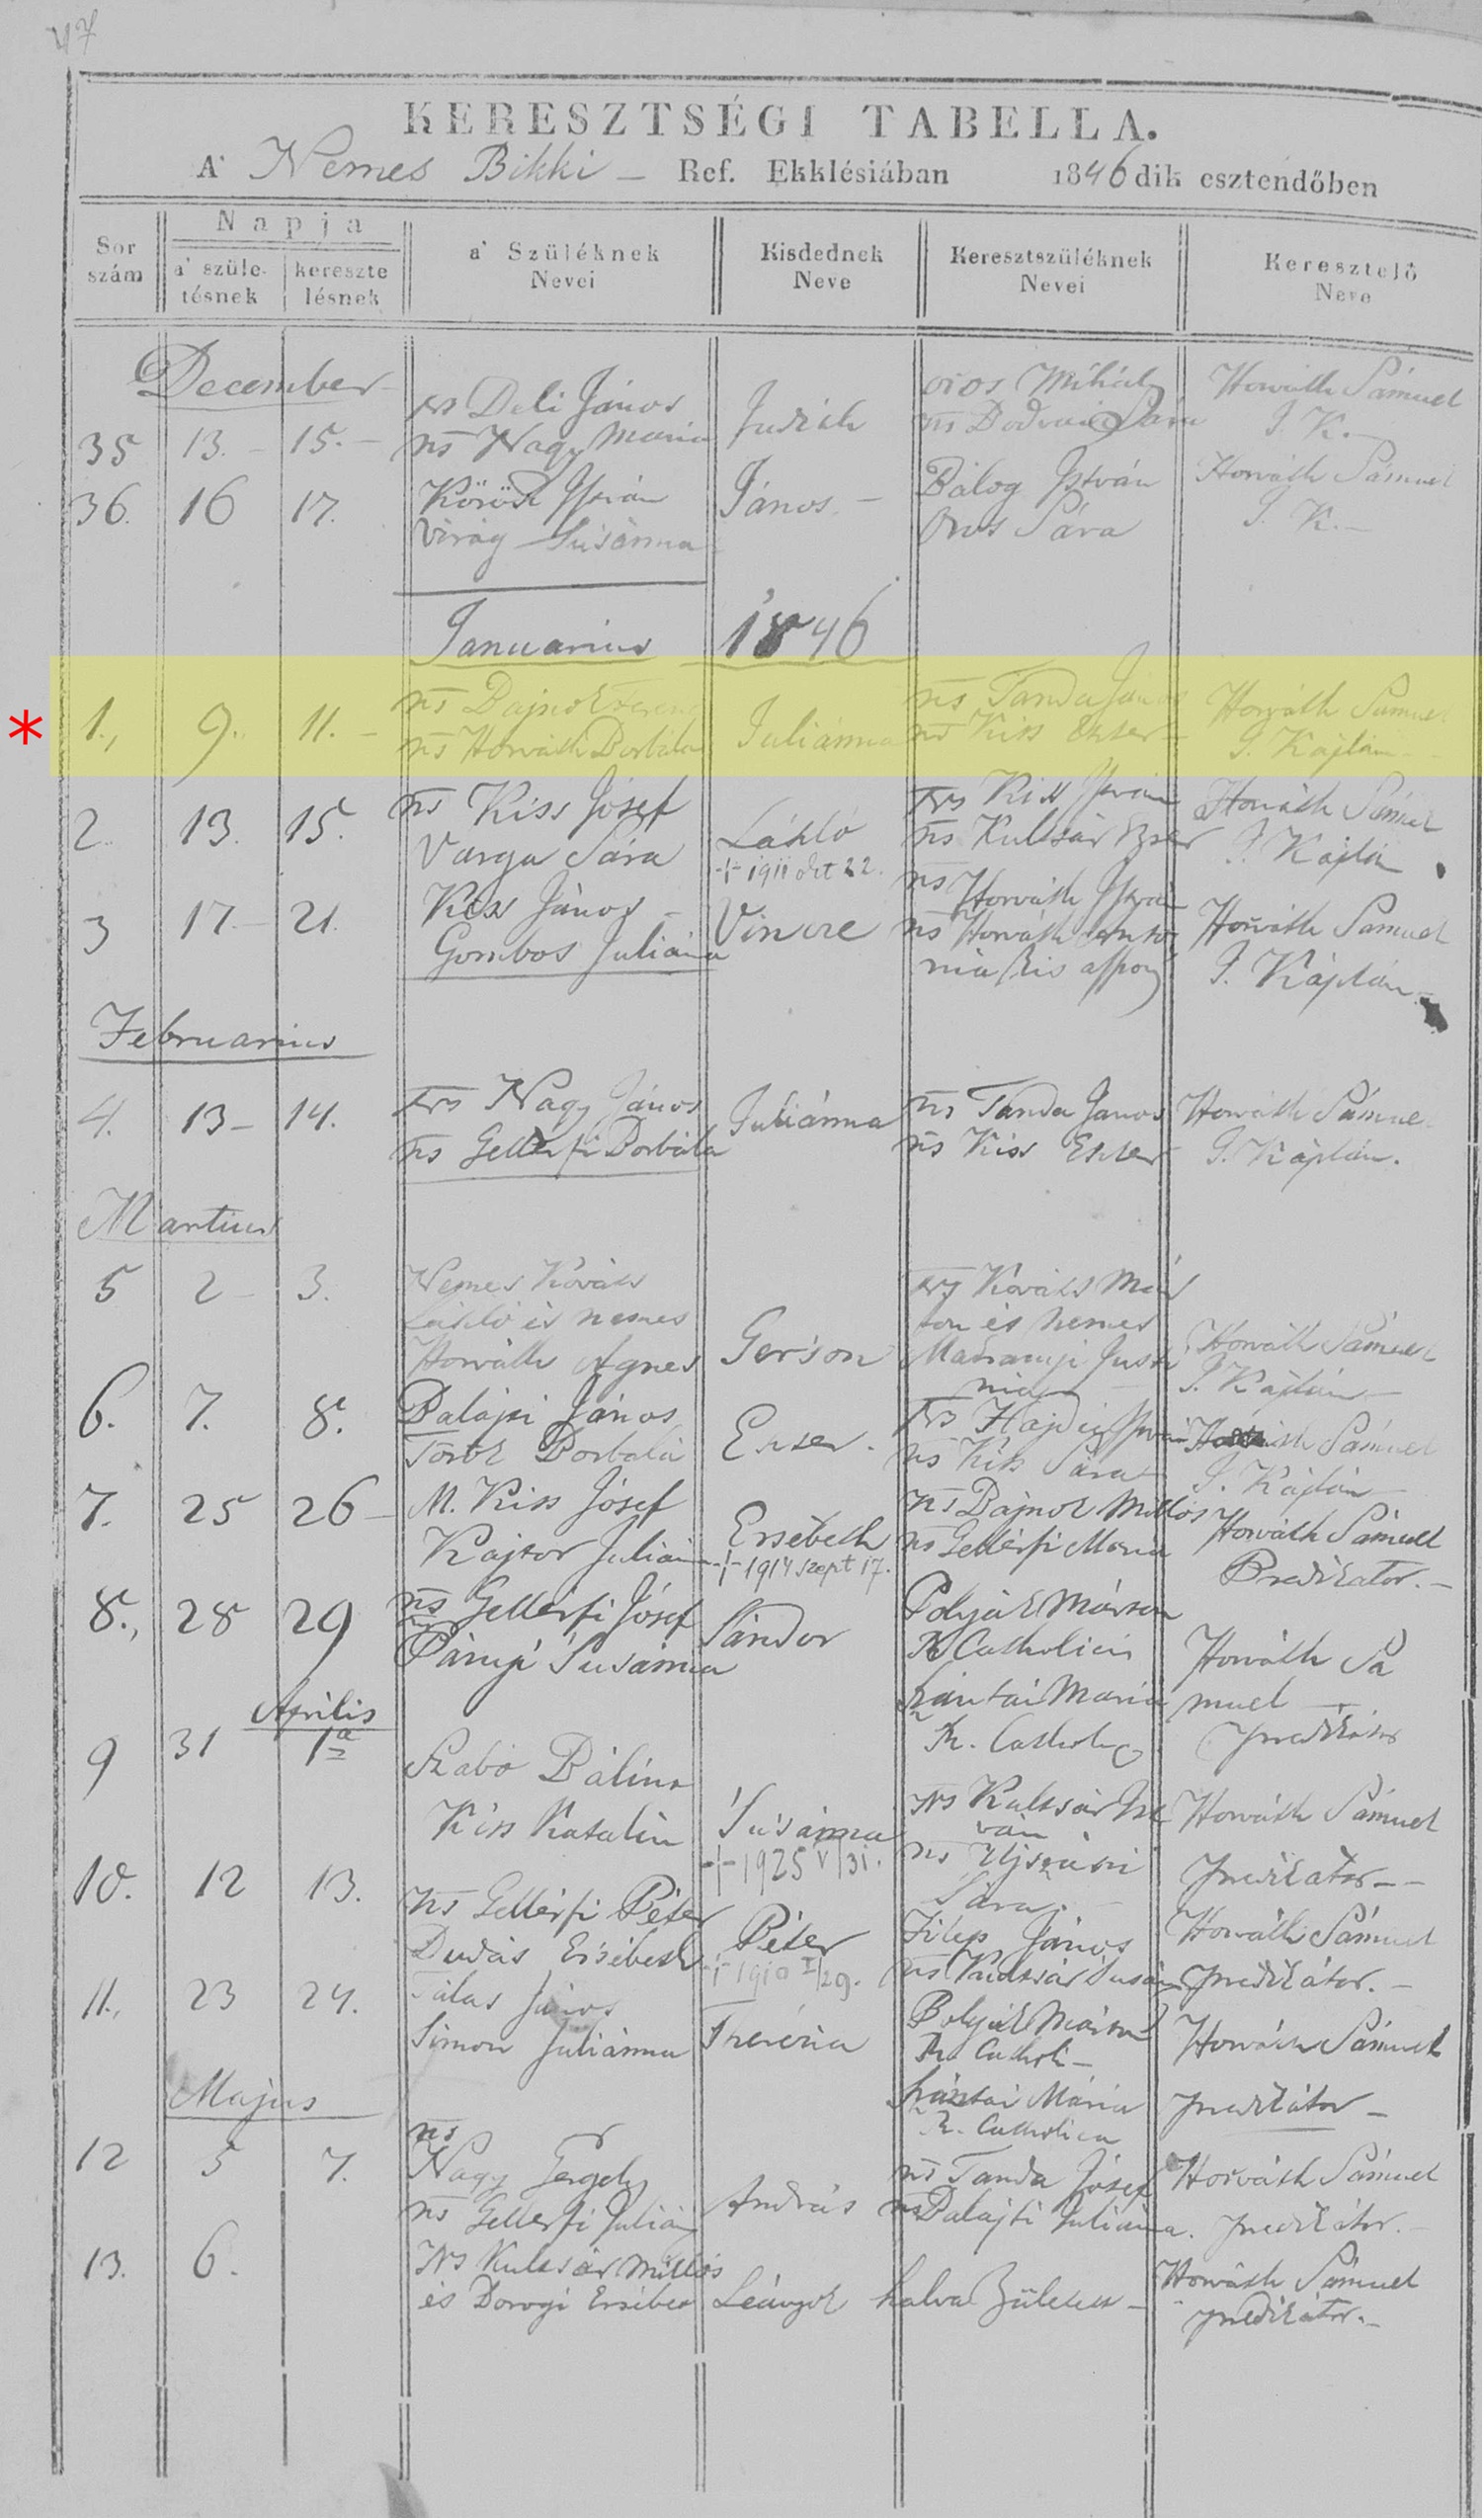 47
KERESZTSÉGI TABELLA.
A' Nemes Bikki – Ref. Ekklésiában 1846dik esztendőben
Sor szám
Napja
a' születésnek
keresztelésnek
a' Szüléknek Nevei
Kisdednek Neve
Keresztszüléknek Nevei
Keresztelő Neve
December
35 13. – 15. –
ns Deli János
ns Nagy Maria
Judith
oros Mihály
ns Sára
Horváth Sámuel
S. K. –
36. 16 17.
István
Virág Susánna
János –
Bálog István
Oros Sára
Horváth Sámuel
S. K. –
Januarius 1846
* 1., 9. 11. –
ns Bajnok Ferenc
ns Horváth Borbála
Juliánna
ns Tanda János
ns Kiss Eszter
Horváth Sámuel
S. Káplán
2. 13. 15.
ns Kiss Jósef
Varga Sára
László
+ 1911 okt 22.
ns Kiss István
ns Kultsár Eszter
Horváth Sámuel
S. Káplán
3 17 – 21.
Kiss János –
Gombos Juliána
Vincze
ns Horváth
ns Horváth Anto
nia kis asszony
Horváth Sámuel
S. Káplán –
Februarius
4. 13 – 14.
ns Nagy János
ns Gellérfi Borbála
Juliánna
ns Tanda János
ns Kiss Eszter
Horváth Sámuel
S. Káplán.
Martius
5 2 – 3.
Nemes Kováts
László és nemes
Horváth Ágnes
Gerson
ns Kováts Már
ton és Nemes
Horváth Sámuel
S. Káplán –
6. 7. 8.
Balajti János
Török Borbála
Eszter.
ns Hajdú
ns Kiss Sára
Horváth Sámuel
S. Káplán –
7. 25 26 –
M. Kiss Jósef
Kajtor Juliána
Ersébeth
+ 1914 szept 17.
ns Bajnok Miklós
ns Gellérfi Maria
Horváth Sámuel
Predikator. –
8., 28 29
ns Gellérfi Jósef
Susánna
Sándor
Polyák Márton
R. Catholicus
Szántai Maria
R. Catholica
Horváth Sá
muel –
predikátor
Április
9 31 1a
Szabó Bálint
Kiss Katalin
Susánna
+ 1925 V/31.
Ns Kultsár Ist
ván
ns Ujszászi
Sára.
Horváth Sámuel
predikator – –
10. 12 13.
ns Gellérfi Péter
Dudás Ersébeth
Péter
+ 1910 I/29.
Filep János
ns Kultsár Susána
Horváth Sámuel
predikátor. –
11., 23 24.
Tálas János
Simon Juliánna
Therézia
Polyák Márton
R. Catholi –
Szántai Mária
R. Catholica
Horváth Sámuel
predikátor –
Majus
12 5 7.
ns
Nagy Gergely
ns Gellérfi Juliána
András
ns Tanda Jósef
ns Balajti Juliánna.
Horváth Sámuel
predikátor. –
13. 6.
Ns Kultsár Miklós
és Dorogi Ersébet
Leányok halva Születtek –
Horváth Sámuel
predikátor. –